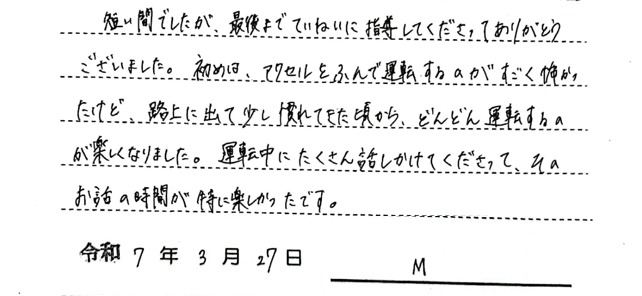 短い間でしたが、最後までていねいに指導してくださってありがとう
ございました。初めは、アクセルをふんで運転するのがすごく怖かっ
たけど、路上に出て少し慣れてきた頃から、どんどん運転するの
が楽しくなりました。運転中にたくさん話しかけてくださって、その
お話の時間が特に楽しかったです。
令和 7 年 3 月 27 日 M